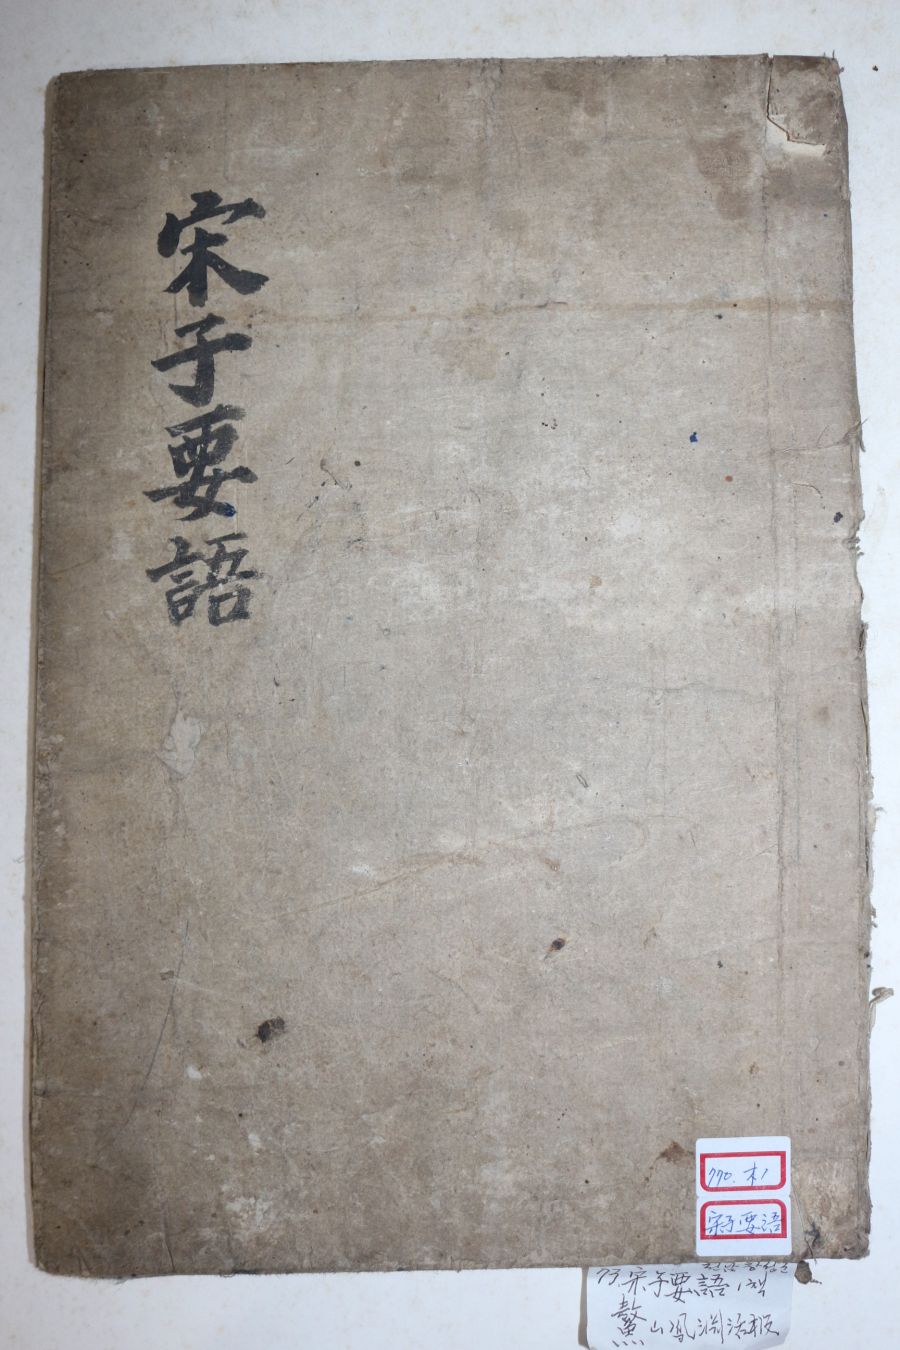 宋子要語
770. 木1
宋子要語
宋子要語 1책
鰲山鳳淵活板